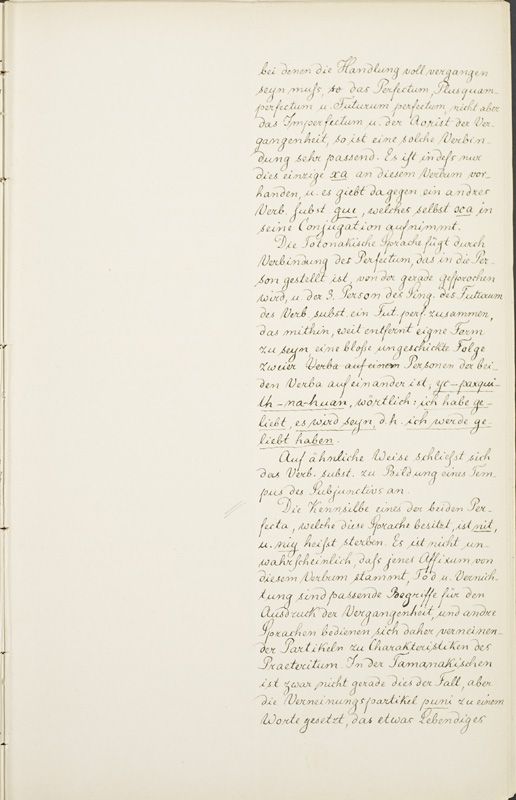 bei denen die Handlung voll vergangen
seyn muſs, so das Perfectum, Plusquam-
perfectum u. Futurum perfectum, nicht aber
das Imperfectum u. der Aorist der Ver-
gangenheit, so ist eine solche Verbin-
dung sehr passend. Es iſt indeſs nur
dies einzige xa an diesem Verbum vor-
handen, u. es giebt dagegen ein andres
Verb. ſubst. gue, welches selbst xa in
seine Conjugation aufnimmt.
Die Totonakische Sprache fügt durch
Verbindung des Perfectum, das in die Per-
son gestellt ist, von der gerade geſprochen
wird, u. der 3. Person des Sing. des Futurum
des Verb. subst. ein Fut. perf. zusammen,
das mithin, weit entfernt eigne Form
zu seyn, eine bloſse ungeschickte Folge
zweier Verba auf einem Personen der bei-
den Verba auf einander ist, yc-paxqui-
th-na-huan, wörtlich: ich habe ge-
liebt, es wird seyn, d.h. ich werde ge-
liebt haben.
Auf ähnliche Weise schlieſst sich
das Verb. subst. zu Bildung eines Tem-
pus des Subjunctivs an.
Die Kennsilbe eines der beiden Per-
fecta, welche diese Sprache besitzt, ist nit,
u. niy heiſst sterben. Es ist nicht un-
wahrſcheinlich, daſs jenes Affixum von
diesem Verbum stammt, Tod u. Vernich-
tung sind passende Begriffe für den
Ausdruck der Vergangenheit, und andre
Sprachen bedienen sich daher verneinen-
der Partikeln zu Charakteristiken des
Praeteritum. In der Tamanakischen
ist zwar nicht gerade dies der Fall, aber
die Verneinungspartikel puni zu einem
Worte gesetzt, das etwas Lebendiges